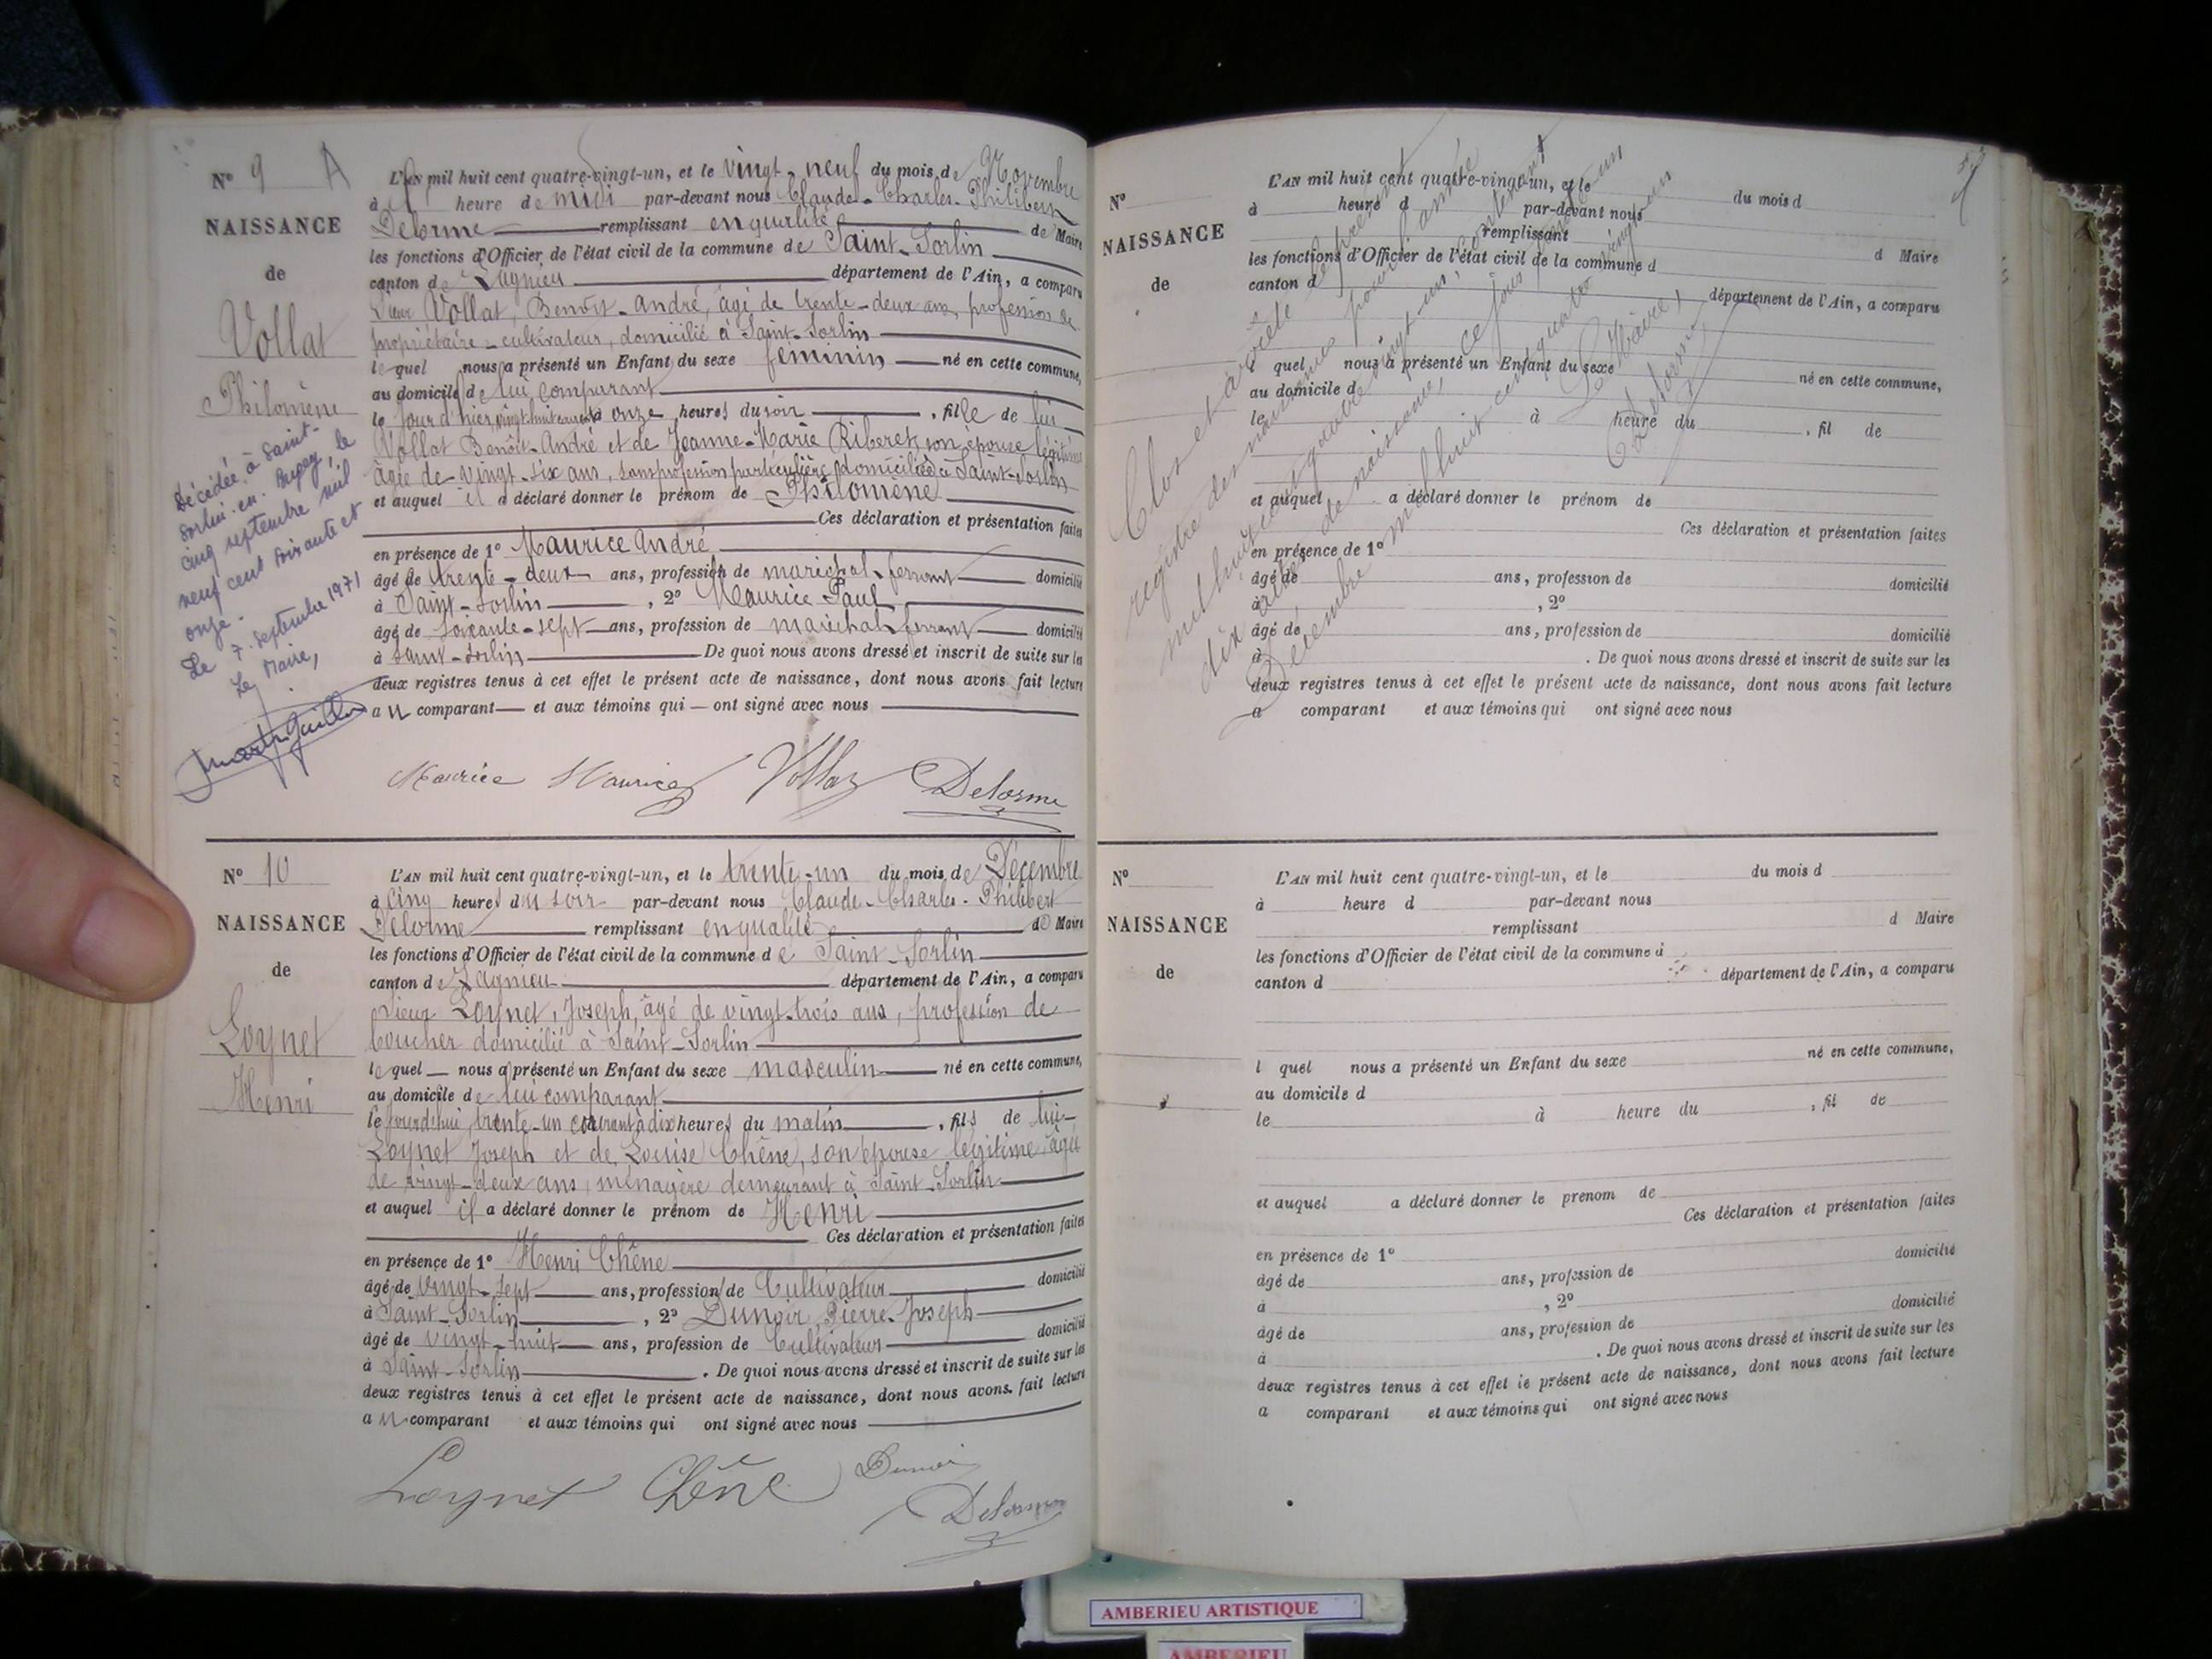 N° 9 A
NAISSANCE
de
Vollat
Philomène
Décédée à Saint-
Sorlin-en-Bugey, le
cinq septembre mil
neuf cent soixante et
onze.
Le 7 septembre 1971
Le Maire,
L'AN mil huit cent quatre-vingt-un, et le vingt-neuf du mois de Novembre
à heure de midi par-devant nous Claude-Charles-Philibert
Delorme remplissant en qualité de Maire
les fonctions d'Officier de l'état civil de la commune de Saint-Sorlin
canton de Lagnieu département de l'Ain, a comparu
Sieur Vollat, Benoît-André, âgé de trente-deux ans, profession de
propriétaire-cultivateur, domicilié à Saint-Sorlin
lequel nous a présenté un Enfant du sexe féminin né en cette commune,
au domicile de lui comparant
le jour d'hier, vingt-huit courant à onze heures du soir, fille de lui
Vollat Benoît-André et de Jeanne-Marie Riberet, son épouse légitime
âgée de vingt-six ans, sans profession particulière, domiciliée à Saint-Sorlin
et auquel il a déclaré donner le prénom de Philomène
Ces déclaration et présentation faites
en présence de 1° Maurice André
âgé de trente-deux ans, profession de maréchal-ferrant domicilié
à Saint-Sorlin, 2° Maurice Paul
âgé de soixante-sept ans, profession de maréchal ferrant domicilié
à Saint-Sorlin De quoi nous avons dressé et inscrit de suite sur les
deux registres tenus à cet effet le présent acte de naissance, dont nous avons fait lecture
au comparant et aux témoins qui ont signé avec nous
Maurice Maurice Vollat Delorme
N° 10
NAISSANCE
de
Loynet
Henri
L'AN mil huit cent quatre-vingt-un, et le trente-un du mois de Décembre
à cinq heures du soir par-devant nous Claude-Charles-Philibert
Delorme remplissant en qualité de Maire
les fonctions d'Officier de l'état civil de la commune de Saint-Sorlin
canton de Lagnieu département de l'Ain, a comparu
Sieur Loynet, Joseph, âgé de vingt-trois ans, profession de
boucher domicilié à Saint-Sorlin
lequel nous a présenté un Enfant du sexe masculin né en cette commune,
au domicile de lui comparant
le jourd'hui, trente-un courant à dix heures du matin, fils de lui
Loynet Joseph et de Louise Chêne, son épouse légitime âgée
de vingt-deux ans, ménagère demeurant à Saint-Sorlin
et auquel il a déclaré donner le prénom de Henri
Ces déclaration et présentation faites
en présence de 1° Henri Chêne
âgé de vingt-sept ans, profession de Cultivateur domicilié
à Saint-Sorlin, 2° Dunoir, Pierre-Joseph
âgé de vingt-huit ans, profession de Cultivateur domicilié
à Saint-Sorlin. De quoi nous avons dressé et inscrit de suite sur les
deux registres tenus à cet effet le présent acte de naissance, dont nous avons fait lecture
au comparant et aux témoins qui ont signé avec nous
Loynet Chêne Dunoir
Delorme
N°
NAISSANCE
de
L'AN mil huit cent quatre-vingt-un, et le du mois d
à heure d par-devant nous
remplissant d Maire
les fonctions d'Officier de l'état civil de la commune d
canton d département de l'Ain, a comparu
l quel nous a présenté un Enfant du sexe né en cette commune,
au domicile d
le à heure du , fil de
et auquel a déclaré donner le prénom de
Ces déclaration et présentation faites
en présence de 1°
âgé de ans, profession de domicilié
à , 2°
âgé de ans, profession de domicilié
à . De quoi nous avons dressé et inscrit de suite sur les
deux registres tenus à cet effet le présent acte de naissance, dont nous avons fait lecture
a comparant et aux témoins qui ont signé avec nous
Clos et arrêté le présent
registre des naissances pour l'année
mil huit cent quatre-vingt-un, contenant
dix actes de naissance, ce jour trente-un
Décembre mil huit cent quatre vingt-un
Le Maire,
Delorme
N°
NAISSANCE
de
L'AN mil huit cent quatre-vingt-un, et le du mois d
à heure d par-devant nous
remplissant d Maire
les fonctions d'Officier de l'état civil de la commune d
canton d département de l'Ain, a comparu
l quel nous a présenté un Enfant du sexe né en cette commune,
au domicile d
le à heure du , fil de
et auquel a déclaré donner le prenom de
Ces déclaration et présentation faites
en présence de 1°
âgé de ans, profession de domicilié
à , 2°
âgé de ans, profession de domicilié
à . De quoi nous avons dressé et inscrit de suite sur les
deux registres tenus à cet effet le présent acte de naissance, dont nous avons fait lecture
a comparant et aux témoins qui ont signé avec nous
AMBERIEU ARTISTIQUE
AMBERIEU